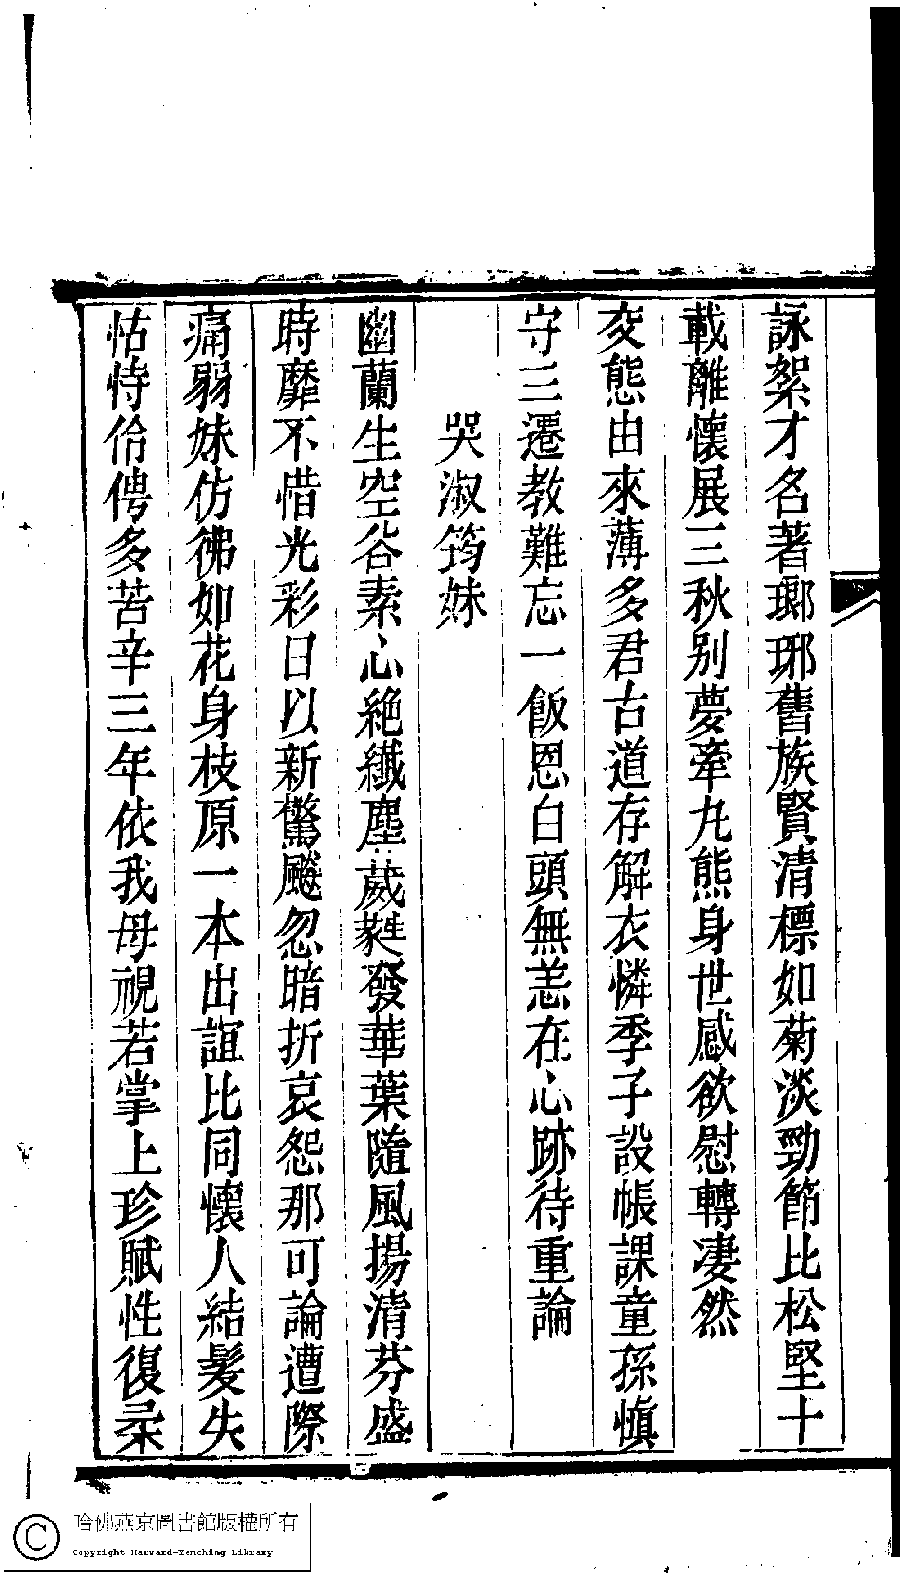 詠絮才名著瑯琊舊族賢清標如菊淡勁節比松堅十
載離懷展三秋别夢牽丸熊身世感欲慰轉凄然
交態由來薄多君古道存解衣憐季子設帳課童孫慎
守三遷教難忘一飯恩白頭無恙在心跡待重論
哭淑筠妹
幽蘭生空谷素心絶纖塵葳蕤發華葉隨風揚清芬盛
時靡不惜光彩日以新驚飈忽暗折哀怨那可論遭際
痛弱妹仿彿如花身枝原一本出誼比同懷人結髮失
怙恃伶俜多苦辛三年依我母視若掌上珍賦性復柔
哈佛燕京圖書館版權所有
Copyright Harvard-Yenching Library